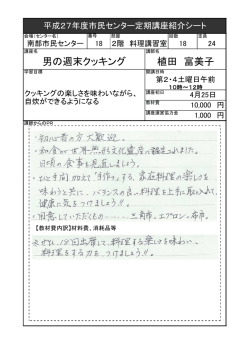 平成27年度市民センター定期講座紹介シート
会場(センター名) 番号 部屋 回数 定員
南部市民センター 18 2階 料理講習室 18 24
講座名 講師名
男の週末クッキング 植田 富美子
学習目標 開講日時
クッキングの楽しさを味わいながら、
自炊ができるようになる
第2・4土曜日午前
10時~12時
講座初日 4月25日
教材費 10,000 円
講座運営協力金 1,000 円
講師からのPR
・初心者の方大歓迎。
・和食が世界無形文化遺産に登録されました。
日頃の食事を見直しましょう。
・ひと手間加えて「手作り」する、家庭料理の楽しさを
味わうと共に、バランスの良い料理を上手に取入れて、
健康に気をつけましょう!!
・用意していただくもの… 三角巾、エプロン、布巾。
【教材費内訳】材料費、消耗品等
ぜひ、18回出席して、料理する楽しさを味わい、
料理をする力をつけましょう!!